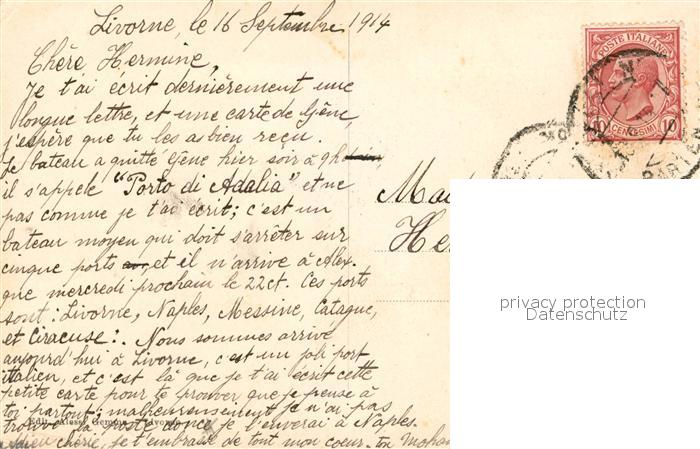 Livorne, le 16 Septembre 1914
Chère Hermine,
Je t'ai écrit dernièrement une
longue lettre, et une carte de Gêne,
j'espère que tu les as bien reçu.
Le bateau a quitté Gêne hier soir à 9h
il s'appele "Porto di Adalia" et ne
pas comme je t'ai écrit; c'est un
bateau moyen qui doit s'arrêter sur
cinque ports et il n'arrive à Alex.
que mercredi prochain le 22ct. Ces ports
sont: Livorne, Naples, Messine, Catagne,
et Ciracuse. Nous sommes arrivé
aujourd'hui à Livorne, c'est un joli port
italien, et c'est là que je t'ai écrit cette
petite carte pour te prouver que je pense à
toi partout; malheureusement je n'ai pas
trouvé la poste donc je l'enverai à Naples.
Adieu chérie, je t'embrasse de tout mon coeur. ton Moham
Mad
He
POSTE ITALIANE
10 CENTESIMI 10
privacy protection
Datenschutz